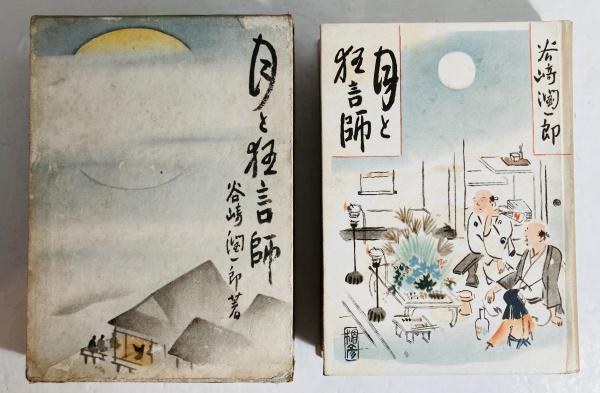 月と狂言師
谷崎潤一郎著
月と
狂言師
谷崎潤一郎